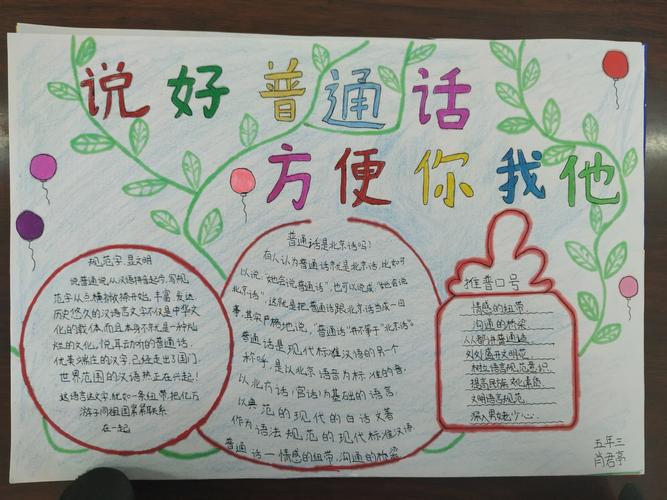 说好普通话
方便你我他
规范字,显文明
说普通说,从汉语拼音起步,写规
范字从点横撇捺开始。丰富、发达
历史悠久的汉语言文字不仅是中华文
化的载体,而且本身就是一种灿
烂的文化,悦耳动听的普通话,
优美端庄的汉字,已经走出了国门,
世界范围的汉语热正在兴起!
这语言这文字,犹如一条纽带,把亿万
游子同祖国紧紧联系
在一起。
普通话是北京话吗?
有人认为普通话就是北京话,比如可
以说“她会说普通话”,也可以说成“她会说
北京话”。这就是把普通话跟北京话当成一回
事,其实严格地说,“普通话”并不等于“北京话”。
普通话是现代标准汉语的另一个
称呼,是以北京语音为标准的音,
以北方话(官话)为基础的语言,
以典范的现代的白话文著
作为语法规范的现代标准汉语
普通话一情感的纽带,沟通的桥梁
推普口号
情感的纽带、
沟通的桥梁
人人都讲普通话,
处处盛开文明花,
树立语言规范意识
提高民族文化素质
文明语言规范,
深入男女老少心.
五年三
肖君亭